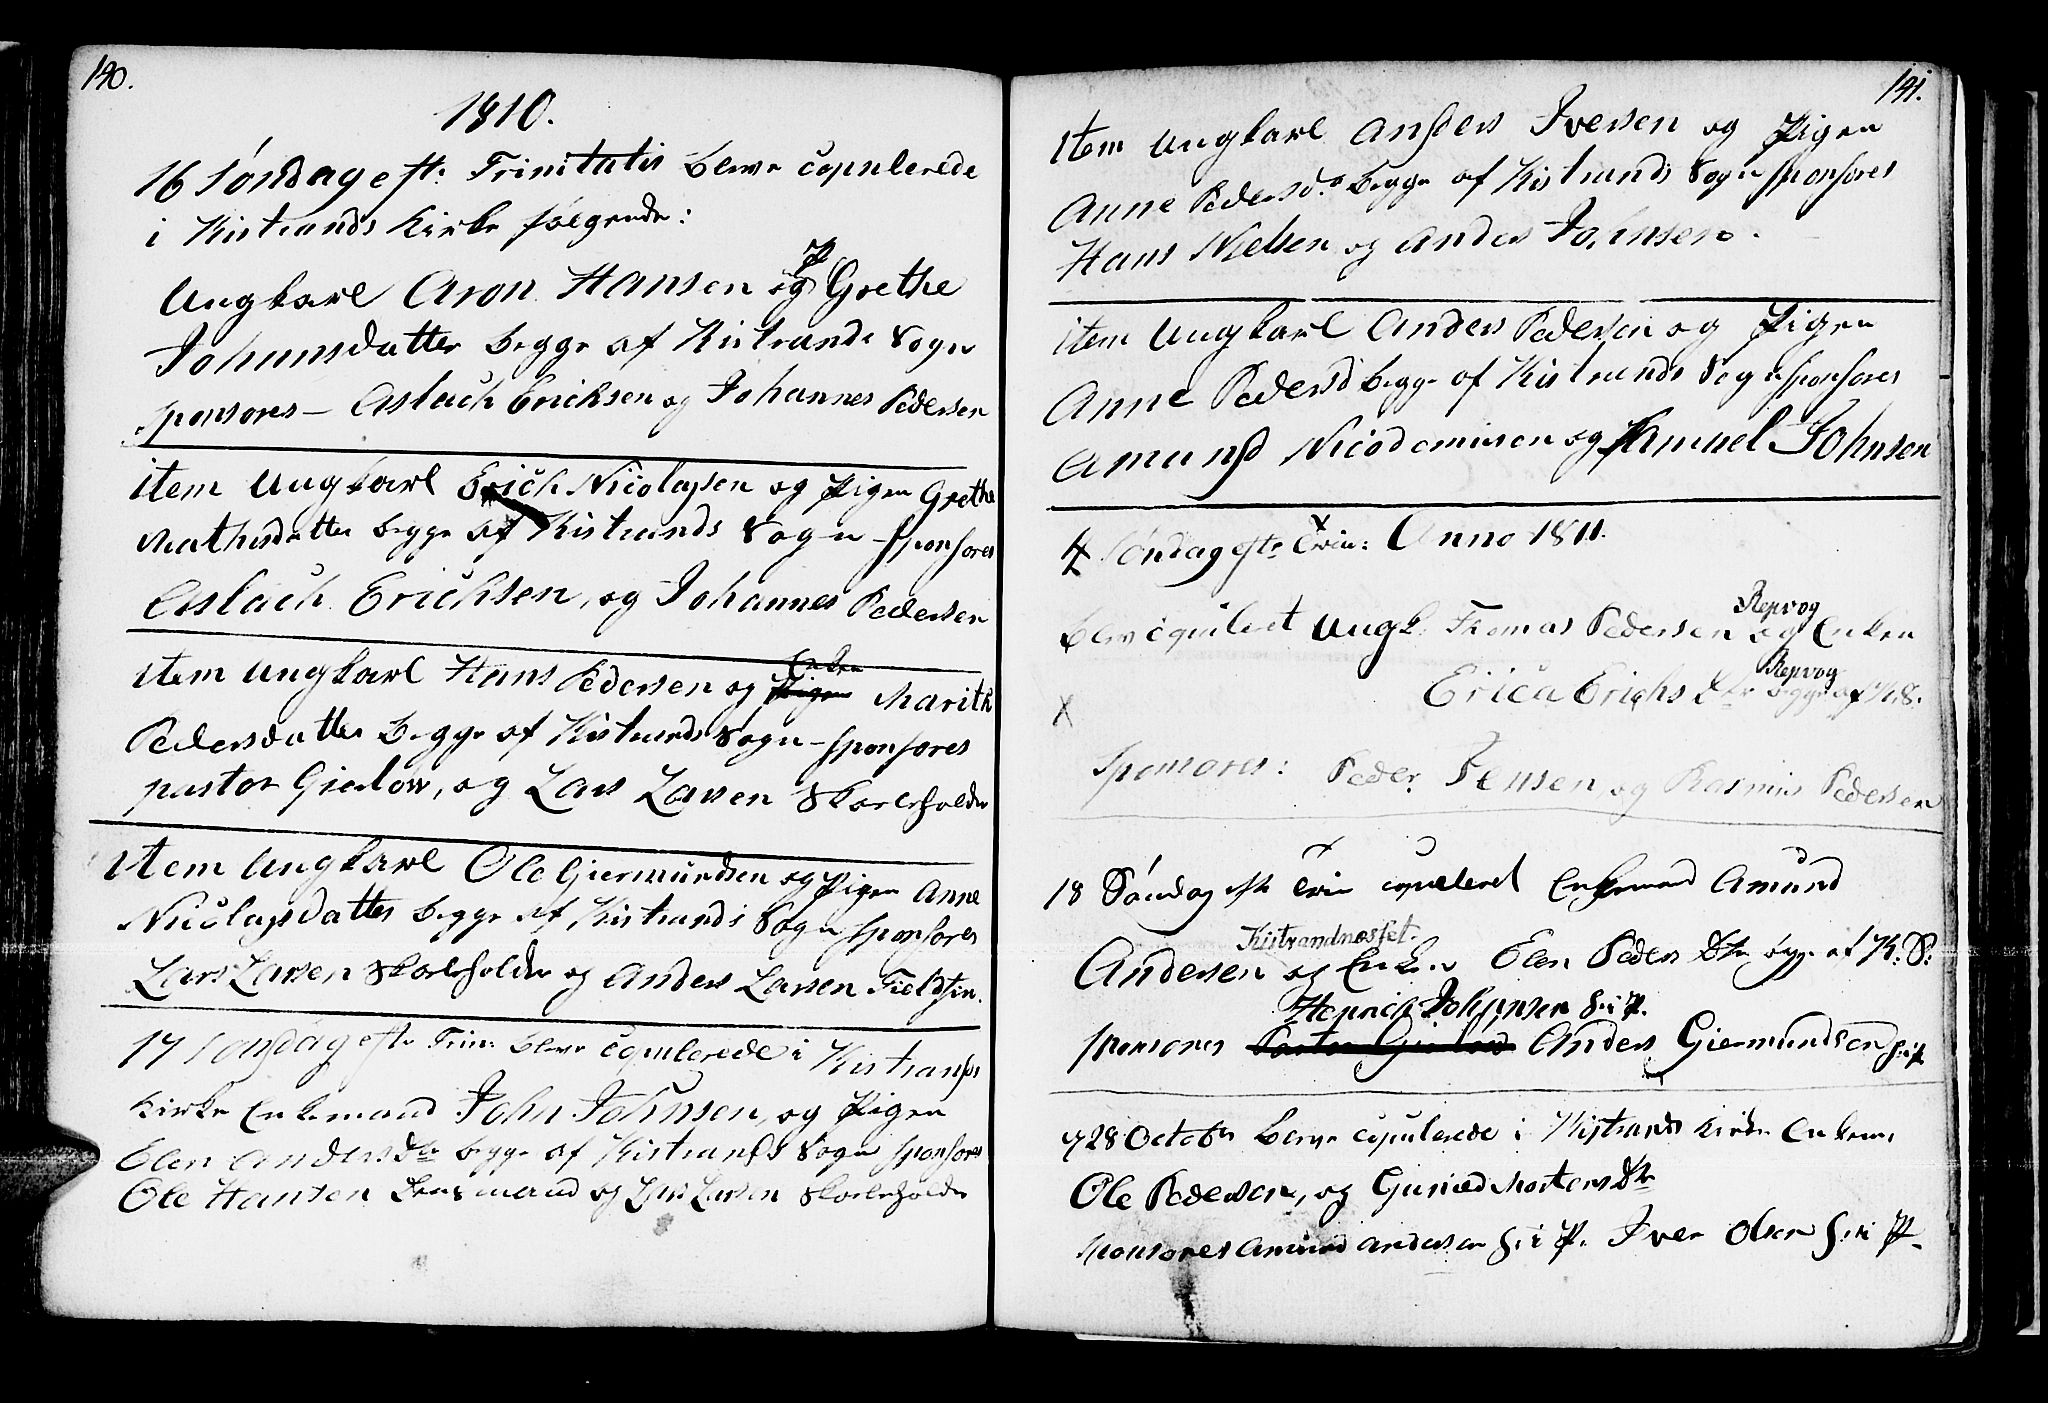 140.
1810.
16 Søndag eft: Trinitatis bleve copulerede
i Kistrands Kirke følgende:
Ungkarl Aron Hansen og P Grethe
Johannsdatter begge af Kistrands Sogn
sponsores – Aslach Ericksen og Johannes Pedersen
item Ungkarl Erich Nicolaysen og Pigen Grethe
Mathisdatter begge af Kistrands Sogn – sponsores
Aslach Erichsen, og Johannes Pedersen
item Ungkarl Hans Pedersen og Pigen Enken Marith
Pedersdatter begge af Kistrands Sogn – sponsores
pastor Gierlow, og Lars Larsen Skoleholder
item Ungkarl Ole Giermundsen og Pigen Anne
Nicolaysdatter begge af Kistrands Sogn sponsores
Lars Larsen Skoleholder og Anders Larsen Fieldfin.
17 Søndag eft: Trin: bleve copulerede i Kistrands
Kirke Enkemand John Johnsen, og Pigen
Elen Andersdtr begge af Kistrands Sogn sponsores
Ole Hansen Lensmand og Lars Larsen Skoleholder
141.
item Ungkarl Anders Iversen og Pigen
Anne Pedersd. begge af Kistrands Sogn sponsores
Hans Nielsen og Anders Johnsen.
item Ungkarl Anders Pedersen og Pigen
Anne Pedersd begge af Kistrands Sogn sponsores
Amund Nicodemusen og Samuel Johnsen
4 Søndag eft: Trin: Anno 1811.
Repvog
blev copuleret Ungk. Thomas Pedersen og Enken
Repvog
Erica Erichs Dtr begge af K.S.
X
Sponsores: Peder Jensen og Rasmus Pedersen
18 Søndag eft Trin copuleret Enkemand Amund
Kistrandnæsset.
Andersen og Enken Elen Peders Dtr begge af K: S:
Henrich Johansen
sponsores Pastor Gierlow Anders Giermundsen
28 Octobr bleve copulerede i Kistrands Kirke Enkem:
Ole Pedersen, og Guriæd Mortens Dtr
sponsores Amund Andersen Iver Olsen